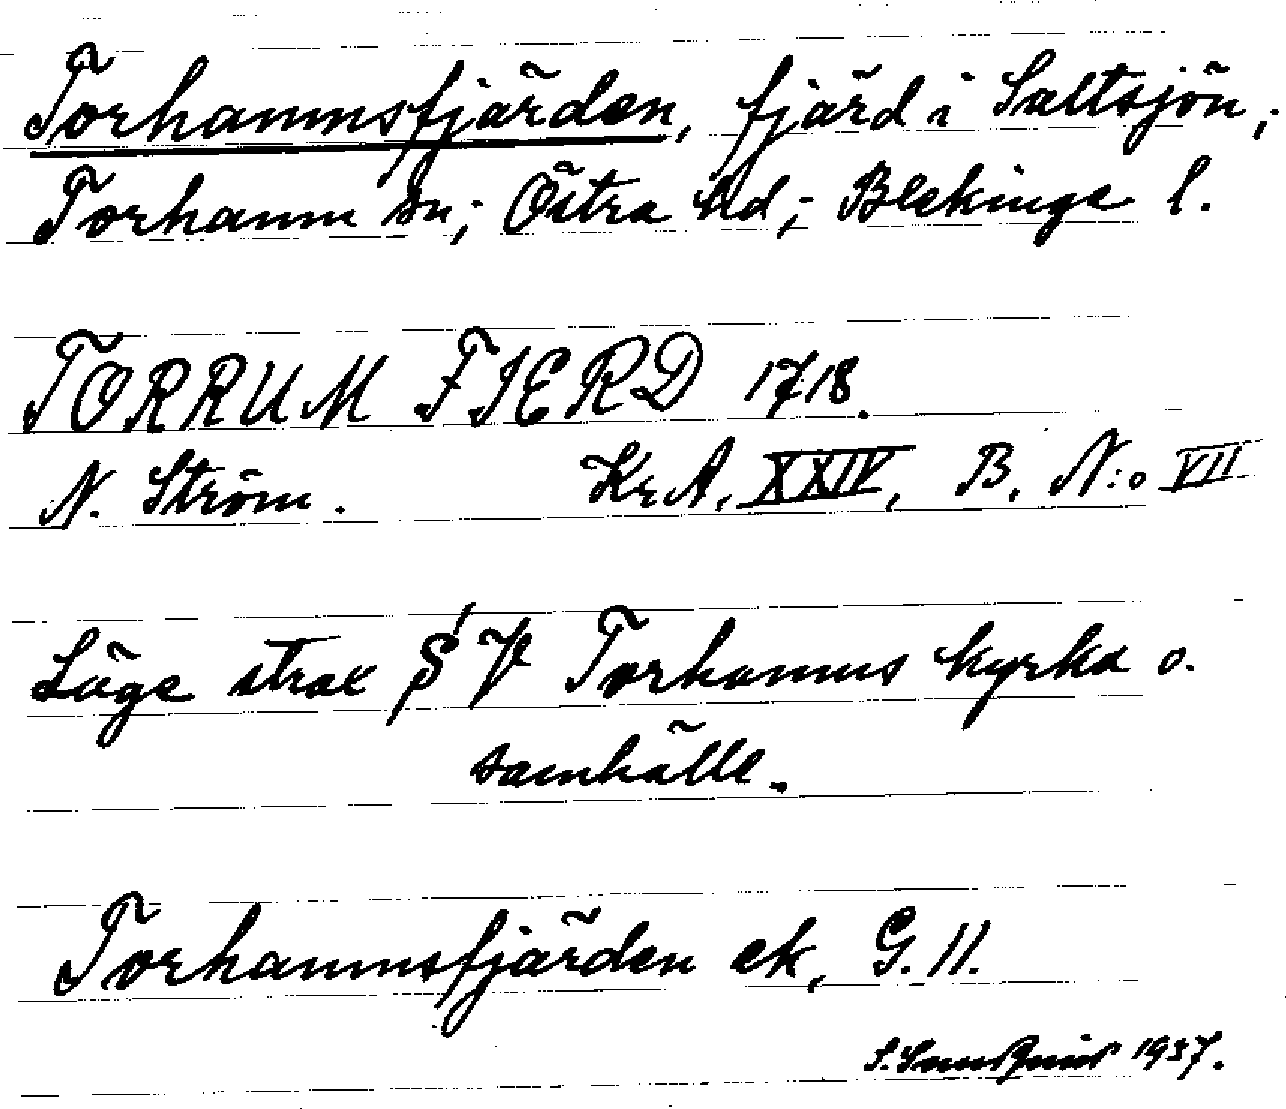 Torhamnsfjärden, fjärd i Saltsjön,;
Torhamn sn; Östra hd,; Blekinge l.
TORRUM FJERD 1718.
N. Ström. KrA, XXIV, B. N:o VII
Läge strax S V Torhamns kyrka o.
samhälle.
Torhamnsfjärden ek, G. 11.
1937.